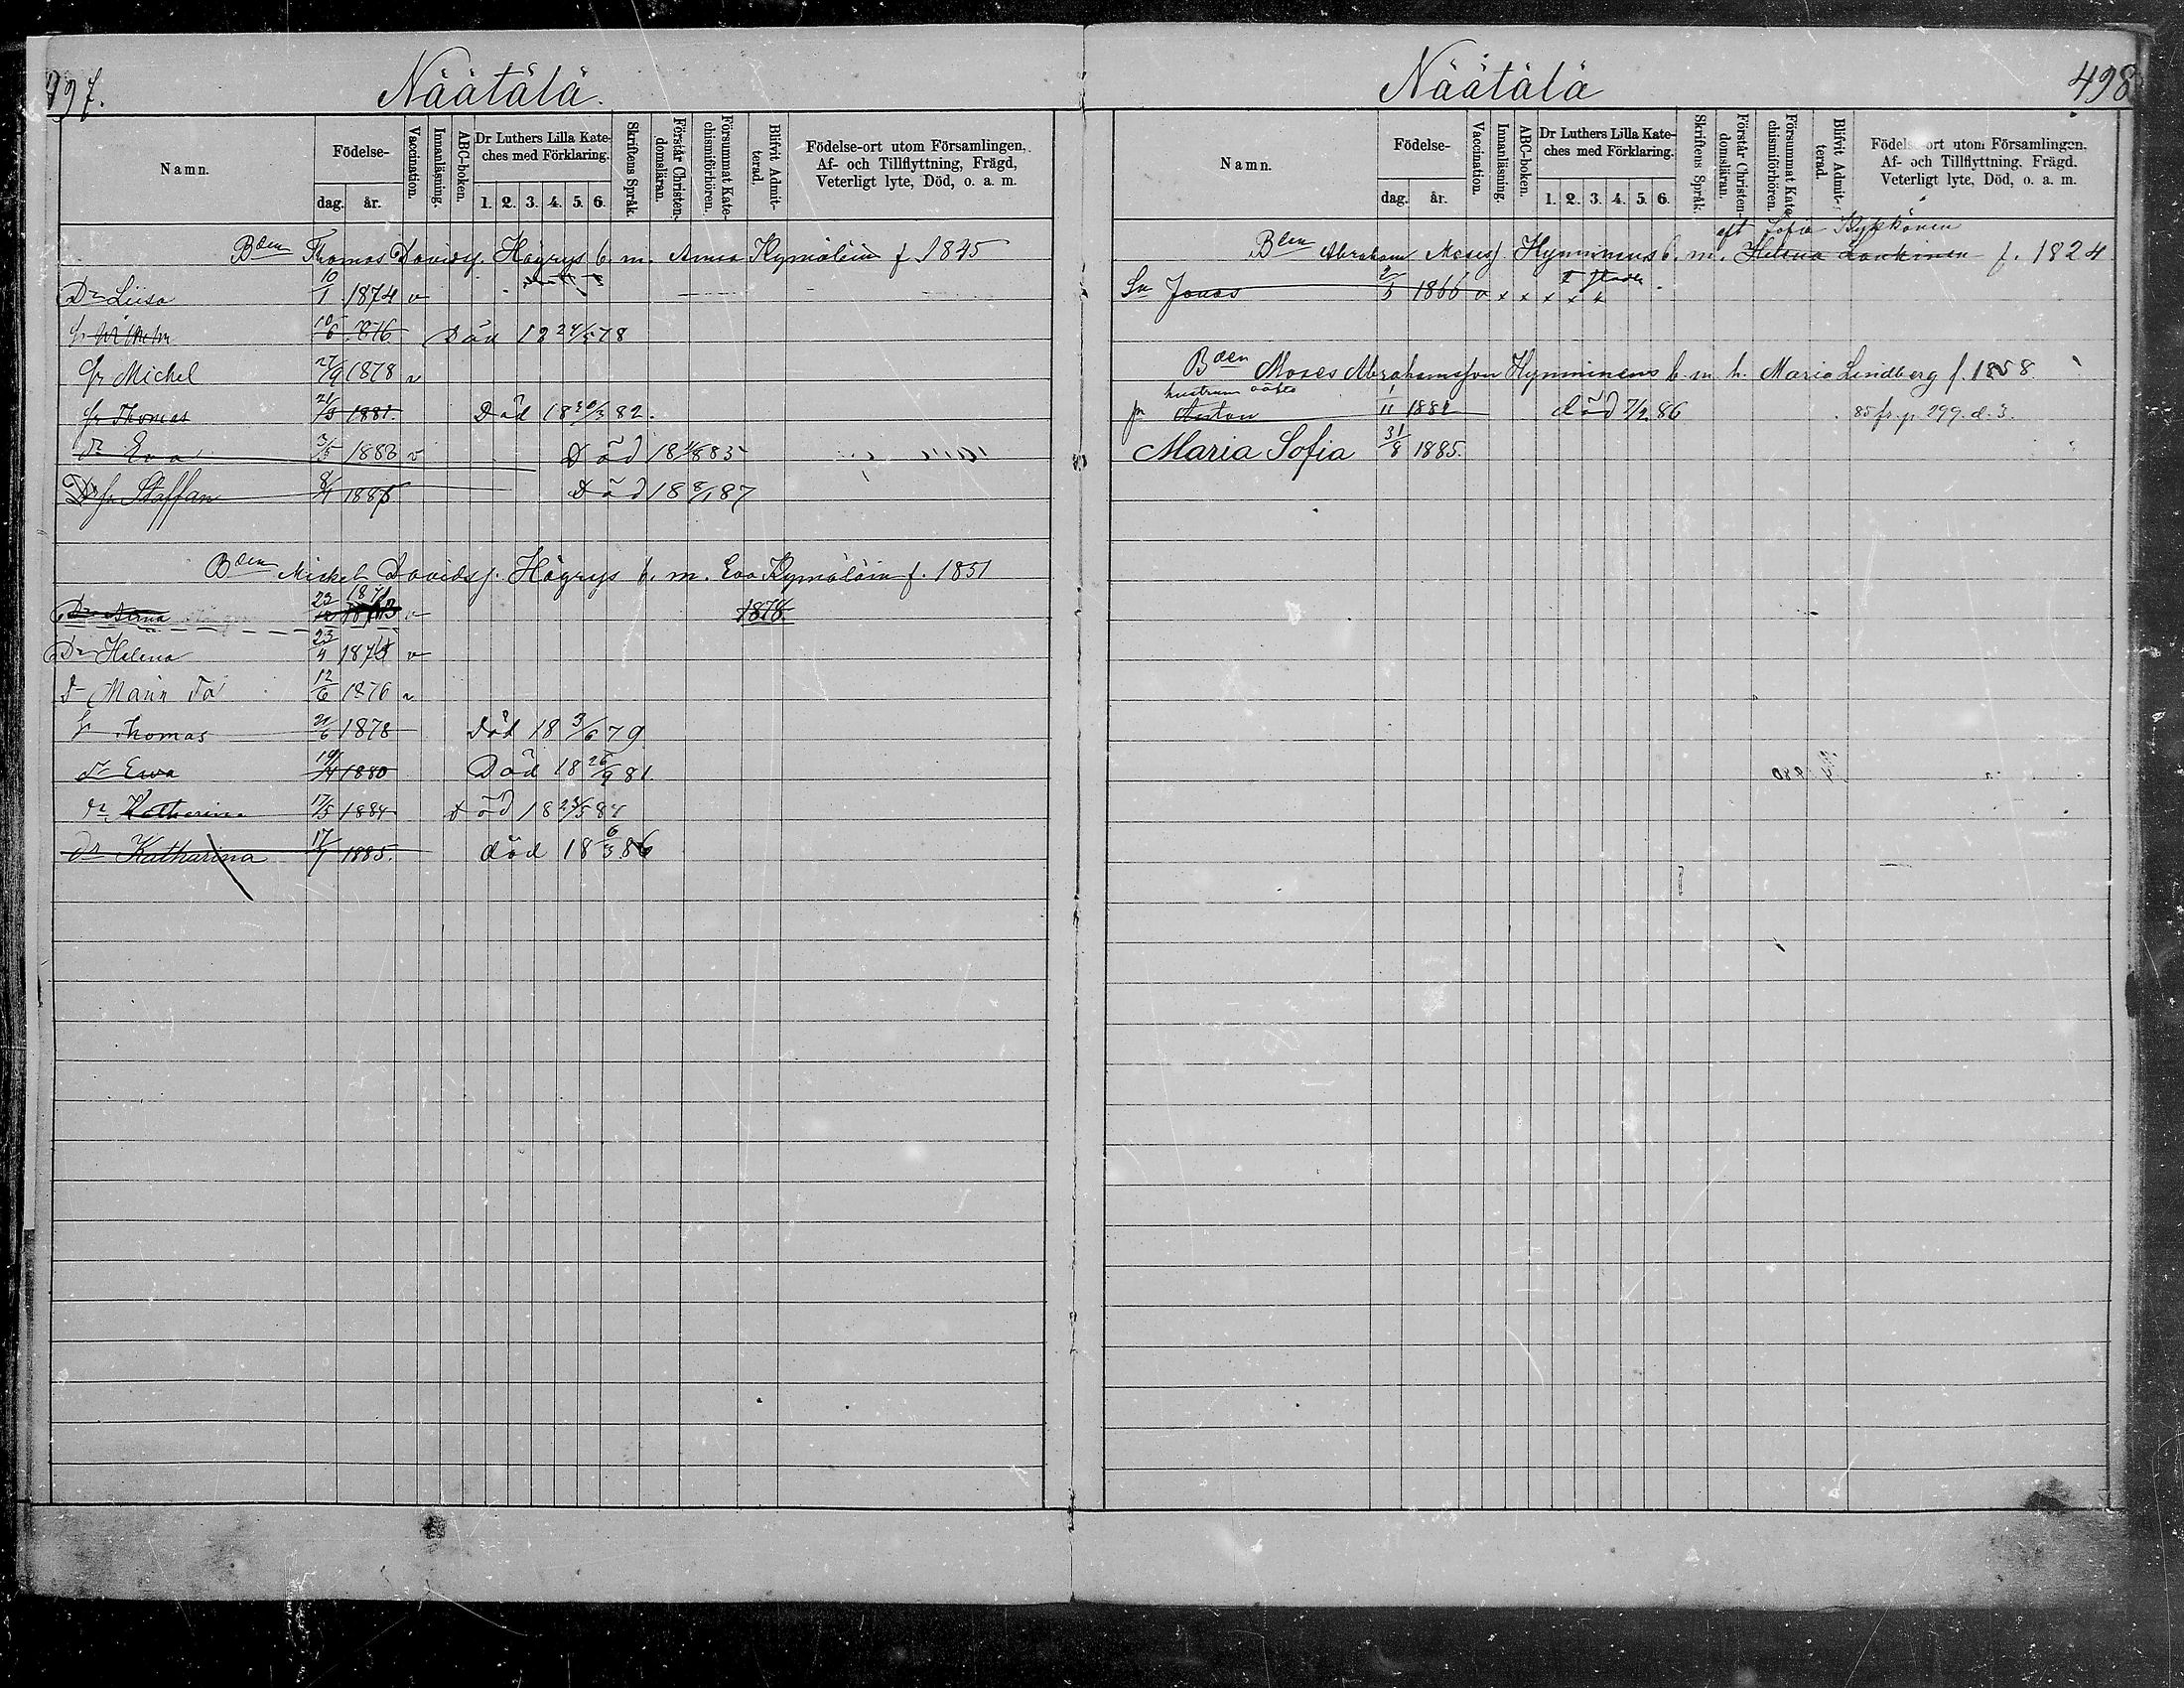 497.
Näätälä.
Namn.
Födelse-
dag. år.
Vaccination.
Innanläsning.
ABC-boken.
Dr Luthers Lilla Kate-
ches med Förklaring.
1. 2. 3. 4. 5. 6.
Skriftens Språk.
Förstår Christen-
domsläran.
Försummat Kate-
chismiförhören.
Blifvit Admit-
terad.
Födelse-ort utom Församlingen,
Af- och Tillflyttning, Frägd,
Veterligt lyte, Död, o. a. m.
Bden Thomas Davidsf. Högrys b. m. Anna Kymäläin f 1845
Dr Liisa 10/1 1874 v
fr Wilhelm 10/6 876 Död 18 24/5 78
fr Michel 27/9 1878 v
fr Thomas 21/5 1881. Död 18 30/3 82.
dr Eva 3/5 1883 v Död 18 4/8 85
Dr fr Staffan 8/4 1886 Död 18 8/1 87
Bden Michel Davidsf. Högrys b. m. Eva Kymäläin f. 1851
Dr Anna 23/12 1871 1873 v 1878.
Dr Helena 23/4 1875 v
d Maria 12/6 1876 v
fr Thomas 21/6 1878 död 18 3/6 79
dr Ewa 19/4 1880 Död 18 26/9 81
dr Katharina 17/5 1884 död 18 23/5 84
dr Katharina 17/7 1885. död 18 6/3 86
Näätälä
498
Namn.
Födelse-
dag. år.
Vaccination.
Innanläsning.
ABC-boken.
Dr Luthers Lilla Kate-
ches med Förklaring.
1. 2. 3. 4. 5. 6.
Skriftens Språk.
Förstår Christen-
domsläran.
Försummat Kate-
chismiförhören.
Blifvit Admit-
terad.
Födelse-ort utom Församlingen.
Af- och Tillflyttning. Frägd.
Veterligt lyte, Död, o. a. m.
eft Sofia Kykkönen
Bden Abraham Mosesf. Hymninens b. m. Helena Lankinen f. 1824
Sn Jonas 2/5 1866 v x x x x x
Bden Moses Abrahamsson Hymninens b. m. h. Maria Lindberg f. 1858.
hustruns oäkta
fr Anton 1/11 1882 död 7/2 86 85 fr. p. 299. d. 3.
Maria Sofia 31/8 1885.